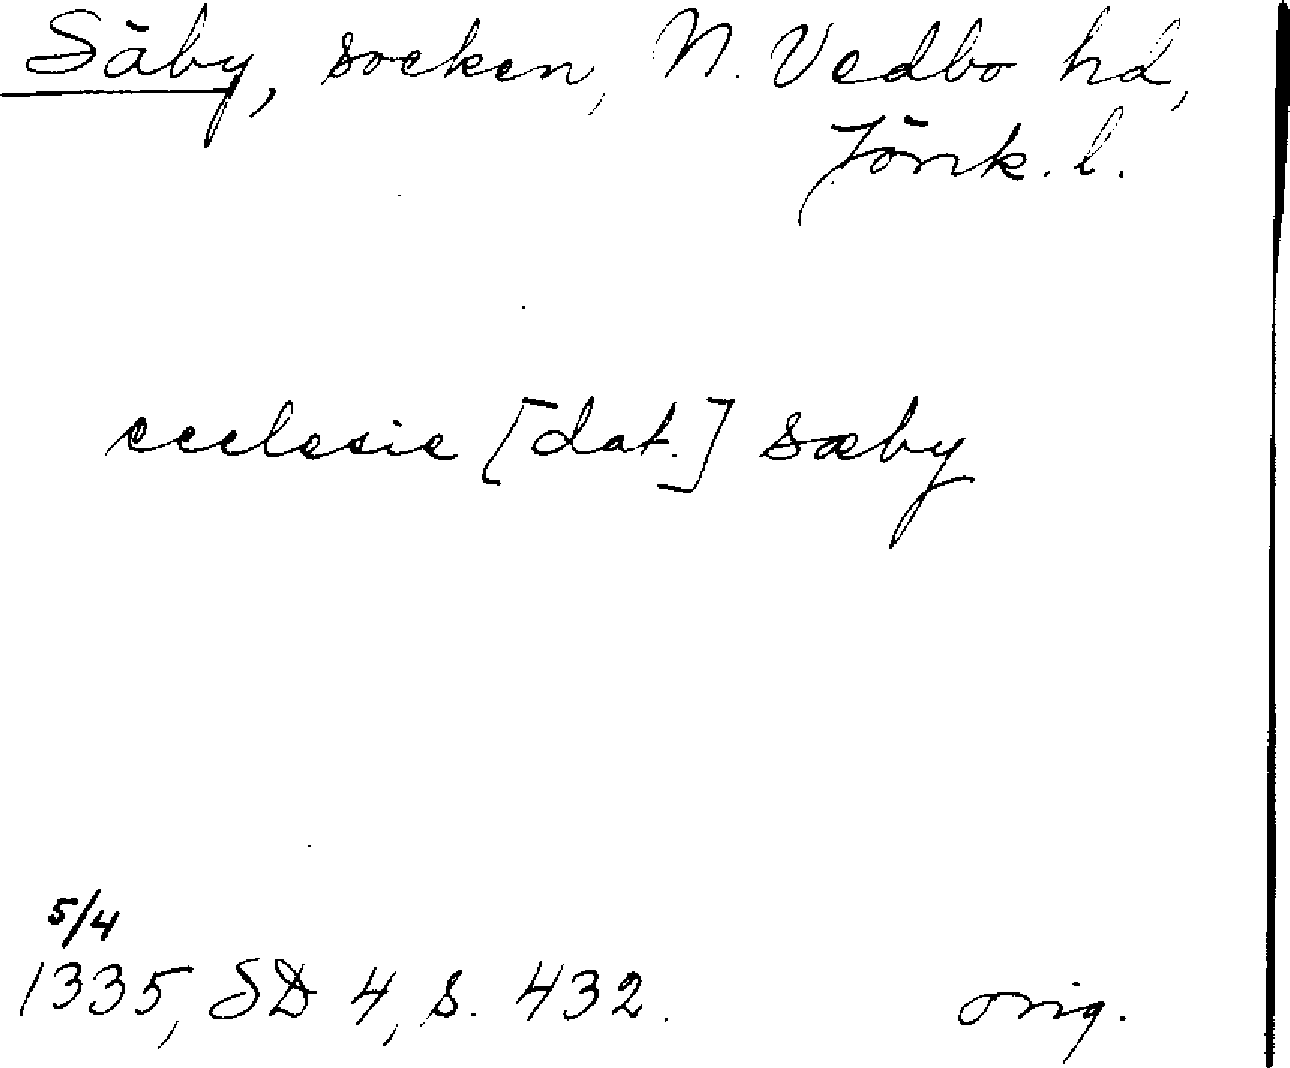 Säby, socken, N. Vedbo hd,
Jönk. l.
ecclesie [dat.] sæby
5/4
1335, SD 4, s. 432.
orig.